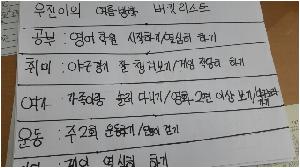 우진이의 여름방학 버킷리스트
공부 : 영어 학원 시작하기/열심히 하기
취미 : 야구경기 잘 챙겨보기/게임 적당히 하기
여가 : 가족이랑 놀러 다니기/영화 2편 이상 보기/
운동 : 주2회 운동하기/많이 걷기
열심히 하기